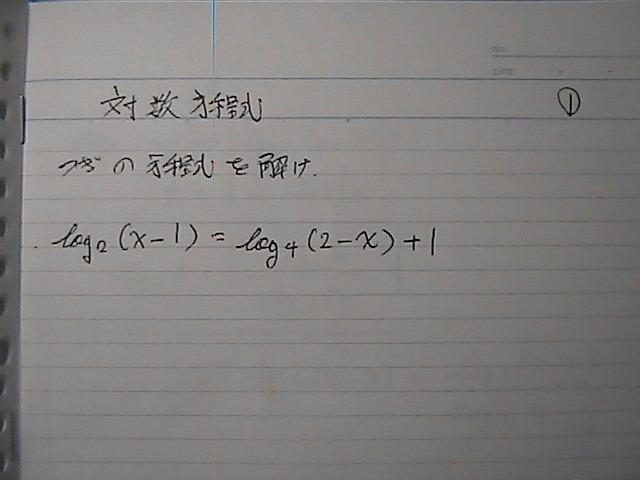 No.
DATE
対数方程式 ①
つぎの方程式を解け.
log₂(x-1) = log₄(2-x)+1